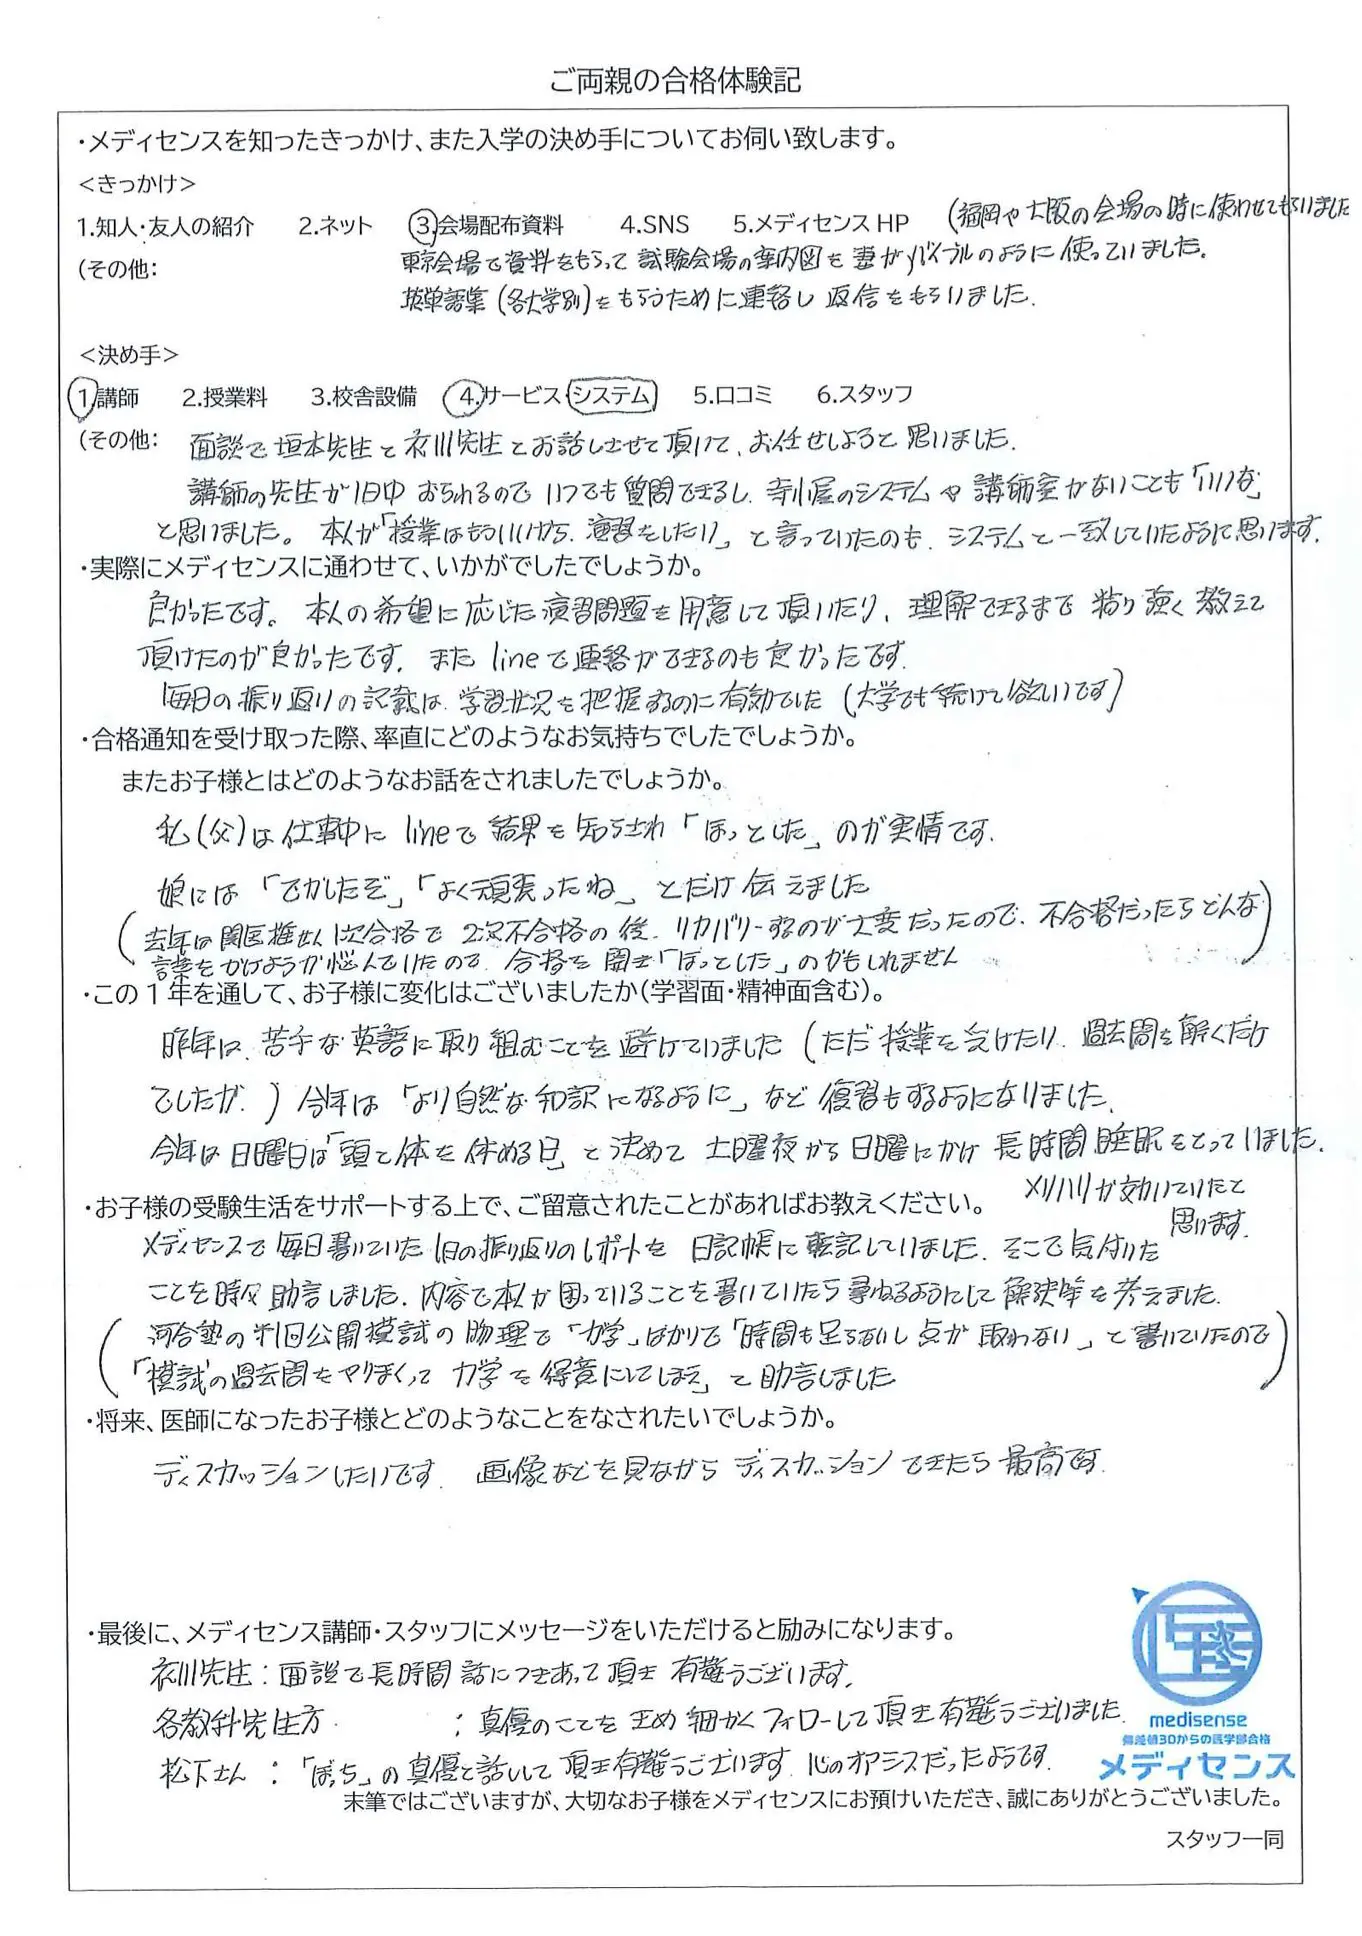 ご両親の合格体験記
・メディセンスを知ったきっかけ、また入学の決め手についてお伺い致します。
<きっかけ>
1.知人・友人の紹介 2.ネット 3.会場配布資料 4.SNS 5.メディセンスHP (福岡や大阪の会場の時に使わせてもらいました
(その他: 東京会場で資料をもらって試験会場の案内図を妻がバイブルのように使っていました。
英単語集(各大学別)をもらうために連絡し返信をもらいました。
<決め手>
1.講師 2.授業料 3.校舎設備 4.サービス・システム 5.口コミ 6.スタッフ
(その他: 面談で垣本先生と衣川先生とお話しさせて頂いて、お任せしようと思いました。
講師の先生が1日中おられるのでいつでも質問できるし、寺小屋のシステムや講師室がないことも「いいな」
と思いました。本人が「授業はもういいから、演習をしたい」と言っていたのも、システムと一致していたように思います。
・実際にメディセンスに通わせて、いかがでしたでしょうか。
良かったです。本人の希望に応じた演習問題を用意して頂いたり、理解できるまで粘り強く教えて
頂けたのが良かったです。また lineで連絡ができるのも良かったです。
毎日の振り返りの記載は、学習状況を把握するのに有効でした(大学でも続けて欲しいです)
・合格通知を受け取った際、率直にどのようなお気持ちでしたでしょうか。
またお子様とはどのようなお話をされましたでしょうか。
私(父)は仕事中に lineで結果を知らされ「ほっとした」のが実情です。
娘には「でかしたぞ」「よく頑張ったね」とだけ伝えました
(去年は関医推せん1次合格で2次不合格の後、リカバリーするのが大変だったので、不合格だったらどんな
言葉をかけようか悩んでいたので、合格を聞き「ほっとした」のかもしれません)
・この1年を通して、お子様に変化はございましたか(学習面・精神面含む)。
昨年は、苦手な英語に取り組むことを避けていました(ただ授業を受けたり、過去問を解くだけ
でしたが。)今年は「より自然な和訳になるように」など復習もするようになりました。
今年は日曜日は「頭と体を休める日」と決めて土曜夜から日曜にかけ長時間睡眠をとっていました。
メリハリが効いていたと
思います。
・お子様の受験生活をサポートする上で、ご留意されたことがあればお教えください。
メディセンスで毎日書いていた1日の振り返りのレポートを日記帳に転記していました。そこで気付いた
ことを時々助言しました。内容で本人が困っていることを書いていたら尋ねるようにして解決策を考えました。
(河合塾の第1回公開模試の物理で「力学」ばかりで「時間も足らないし点が取れない」と書いていたので
「模試の過去問をやりまくって力学を得意にしてしまえ」と助言しました)
・将来、医師になったお子様とどのようなことをなされたいでしょうか。
ディスカッションしたいです。画像などを見ながらディスカッションできたら最高です。
・最後に、メディセンス講師・スタッフにメッセージをいただけると励みになります。
衣川先生:面談で長時間話につきあって頂き有難うございます。
各教科先生方 :真優のことをきめ細かくフォローして頂き有難うございました。
松下さん :「ぼっち」の真優と話して頂き有難うございます。心のオアシスだったようです。
medisense
偏差値30からの医学部合格
メディセンス
末筆ではございますが、大切なお子様をメディセンスにお預けいただき、誠にありがとうございました。
スタッフ一同